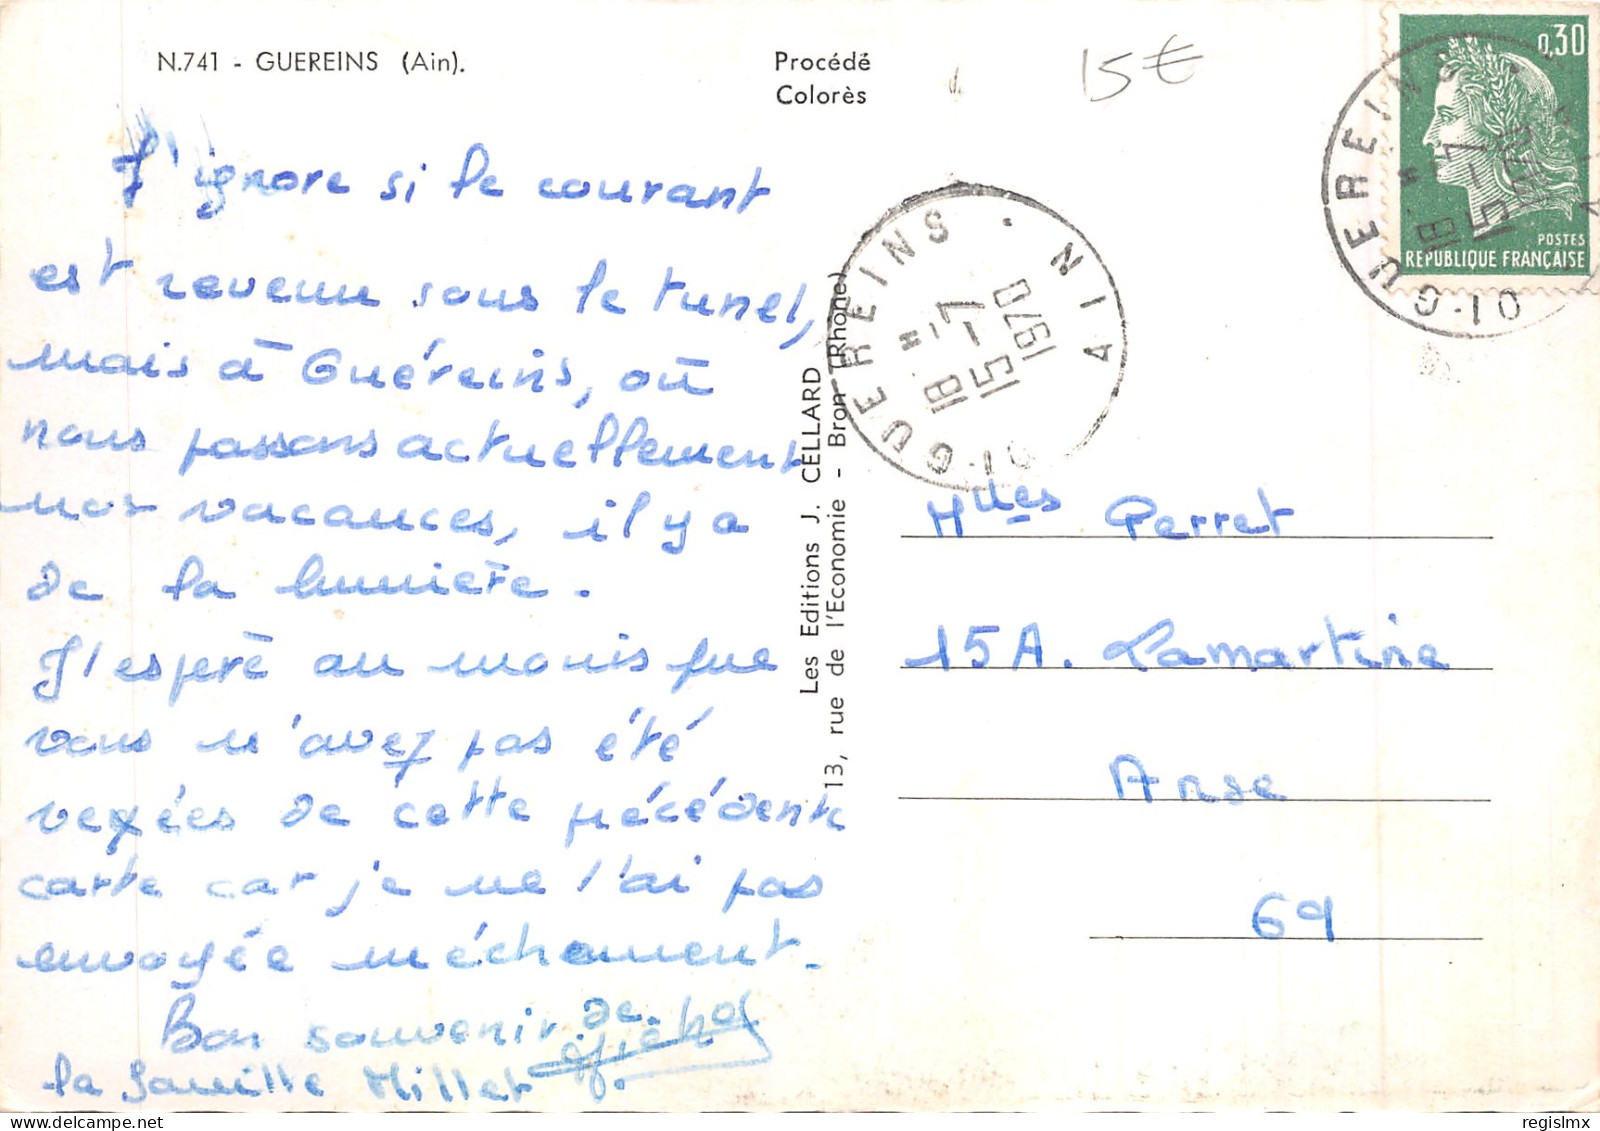 N.741 - GUEREINS (Ain).
Procédé
Colorès
15€
J'ignore si le courant
est revenu sous le tunel,
mais à Guéreins, où
nous passons actuellement
nos vacances, il y a
de la lumière.
J'esperè au moins que
vous n'avez pas été
vexées de cette précédente
carte car je ne l'ai pas
envoyée méchament.
Bon souvenir de
la famille Millet
Les Editions J. CELLARD
13, rue de l'Economie - Bron (Rhône)
GUEREINS · AIN
01·
18 H
15-7
1970
0,30
POSTES
REPUBLIQUE FRANÇAISE
GUEREINS
01·
18 H
15-7
Mlles Perret
15 A. Lamartine
Anse
69
regislmx